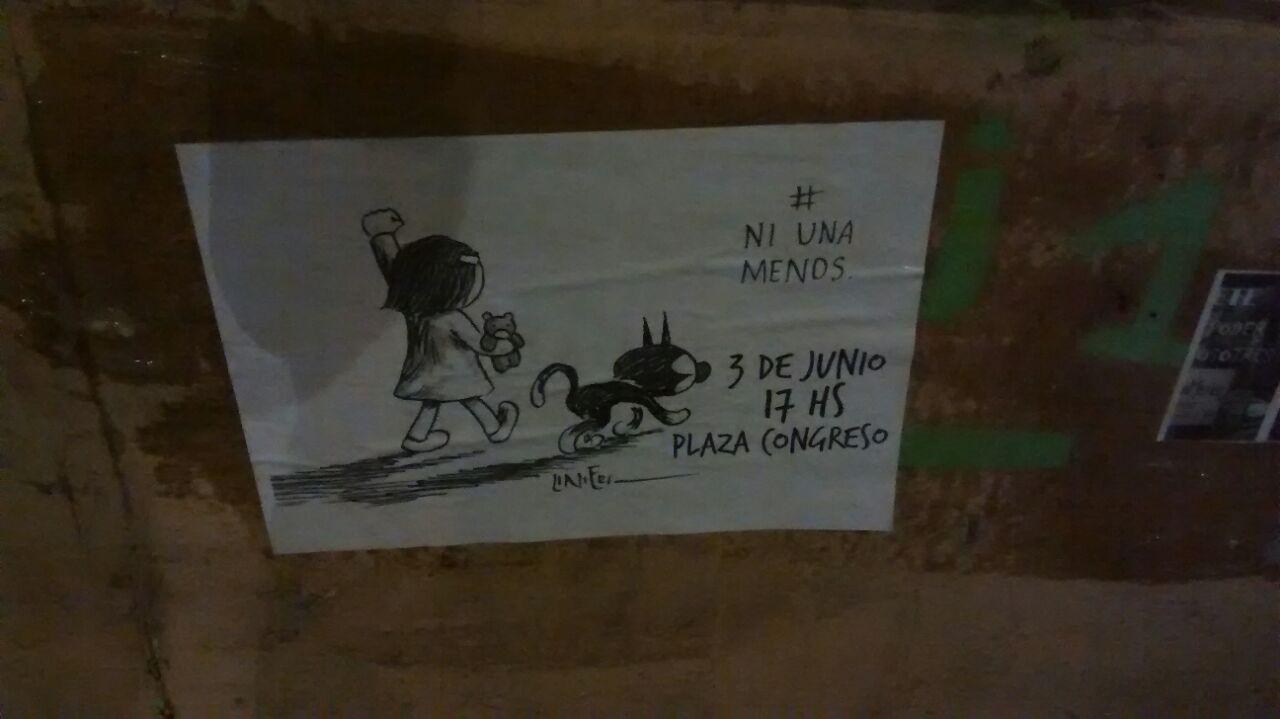 #
NI UNA
MENOS.
3 DE JUNIO
17 HS
PLAZA CONGRESO
LINIERS
i1